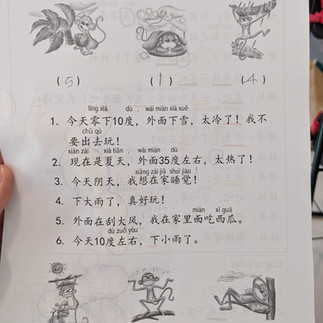 (5) (1) (4)
líng xià dù , wài miàn xià xuě
1. 今天零下10度，外面下雪，太冷了！我不
chū qù
要出去玩！
xiàn zài xià tiān wài miàn dù
2. 现在是夏天，外面35度左右，太热了！
xiǎng zài jiā shuì jiào
3. 今天阴天，我想在家睡觉！
4. 下大雨了，真好玩！
miàn xī guā
5. 外面在刮大风，我在家里面吃西瓜。
dù zuǒ yòu
6. 今天10度左右，下小雨了。